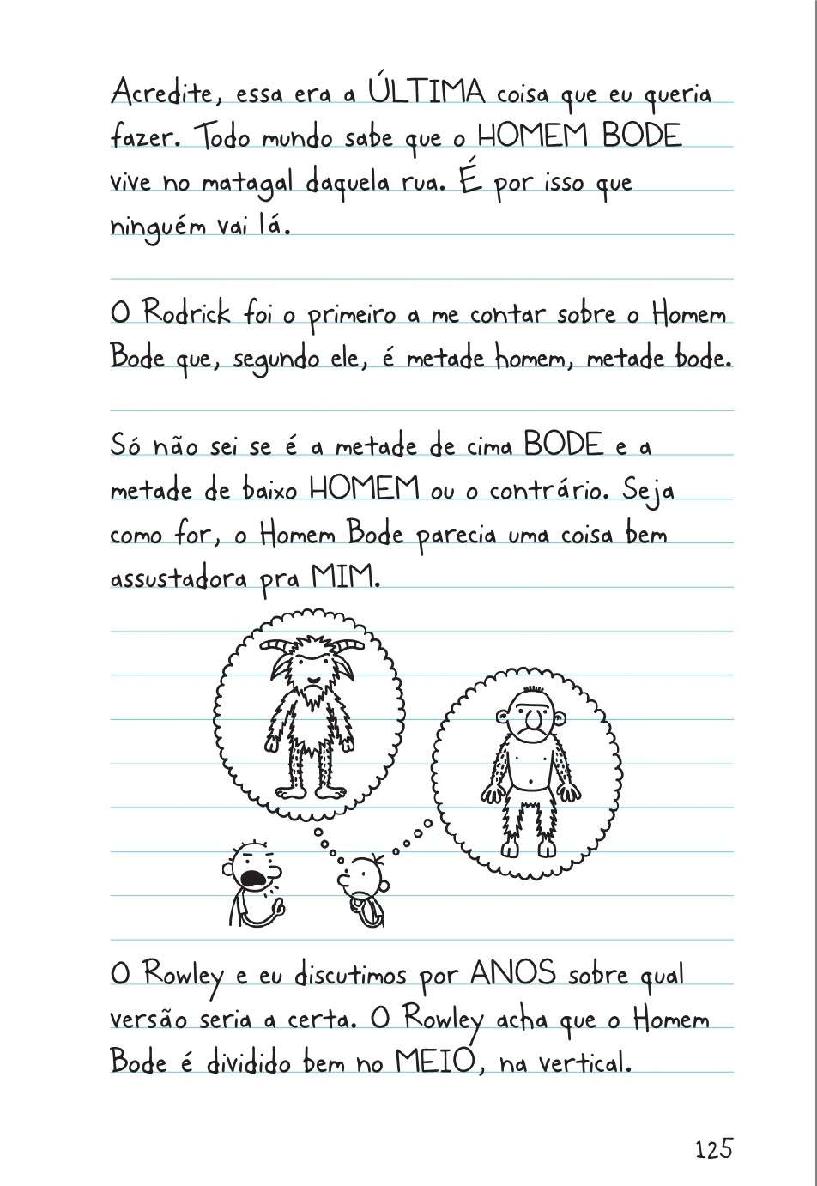 Acredite, essa era a ÚLTIMA coisa que eu queria
fazer. Todo mundo sabe que o HOMEM BODE
vive no matagal daquela rua. É por isso que
ninguém vai lá.
O Rodrick foi o primeiro a me contar sobre o Homem
Bode que, segundo ele, é metade homem, metade bode.
Só não sei se é a metade de cima BODE e a
metade de baixo HOMEM ou o contrário. Seja
como for, o Homem Bode parecia uma coisa bem
assustadora pra MIM.
O Rowley e eu discutimos por ANOS sobre qual
versão seria a certa. O Rowley acha que o Homem
Bode é dividido bem no MEIO, na vertical.
125